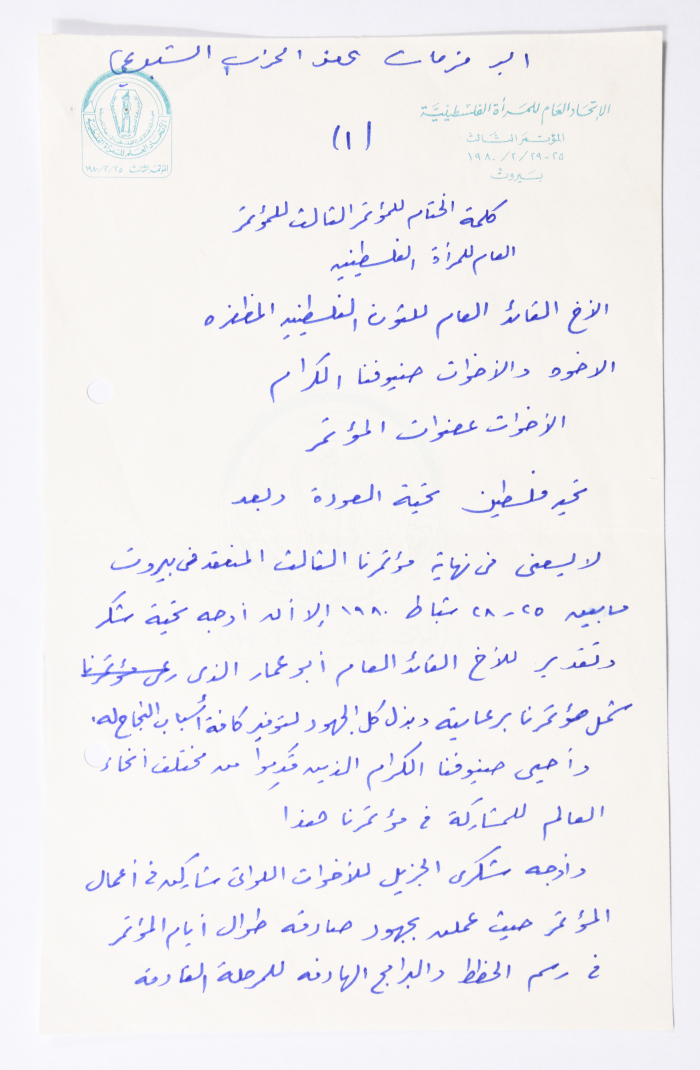 البر فرحات عضو الحزب الشيوعي
الإتحاد العام للمرأة الفلسطينية
المؤتمر الثالث
٢٥-٢٩/٢/١٩٨٠
بيروت
المؤتمر الثالث ٢٥/٢/١٩٨٠
(١)
كلمة الختام للمؤتمر الثالث للمؤتمر
العام للمرأة الفلسطينيه
الأخ القائد العام للثورة الفلسطينيه المظفره
الاخوه والأخوات ضيوفنا الكرام
الأخوات عضوات المؤتمر
تحية فلسطين تحية العودة وبعد
لا يسعني في نهاية مؤتمرنا الثالث المنعقد في بيروت
ما بين ٢٥-٢٨ شباط ١٩٨٠ إلا أن أوجه تحية شكر
وتقدير للأخ القائد العام أبو عمار الذي رعى مؤتمرنا
شمل مؤتمرنا برعايته وبذل كل الجهود لتوفير كافة أسباب النجاح له.
وأحيي ضيوفنا الكرام الذين قدموا من مختلف أنحاء
العالم للمشاركة في مؤتمرنا هذا
وأوجه شكري الجزيل للأخوات اللواتي شاركن في أعمال
المؤتمر حيث عملن بجهود صادقه طوال أيام المؤتمر
في رسم الخطط والبرامج الهادفه للمرحلة القادمه